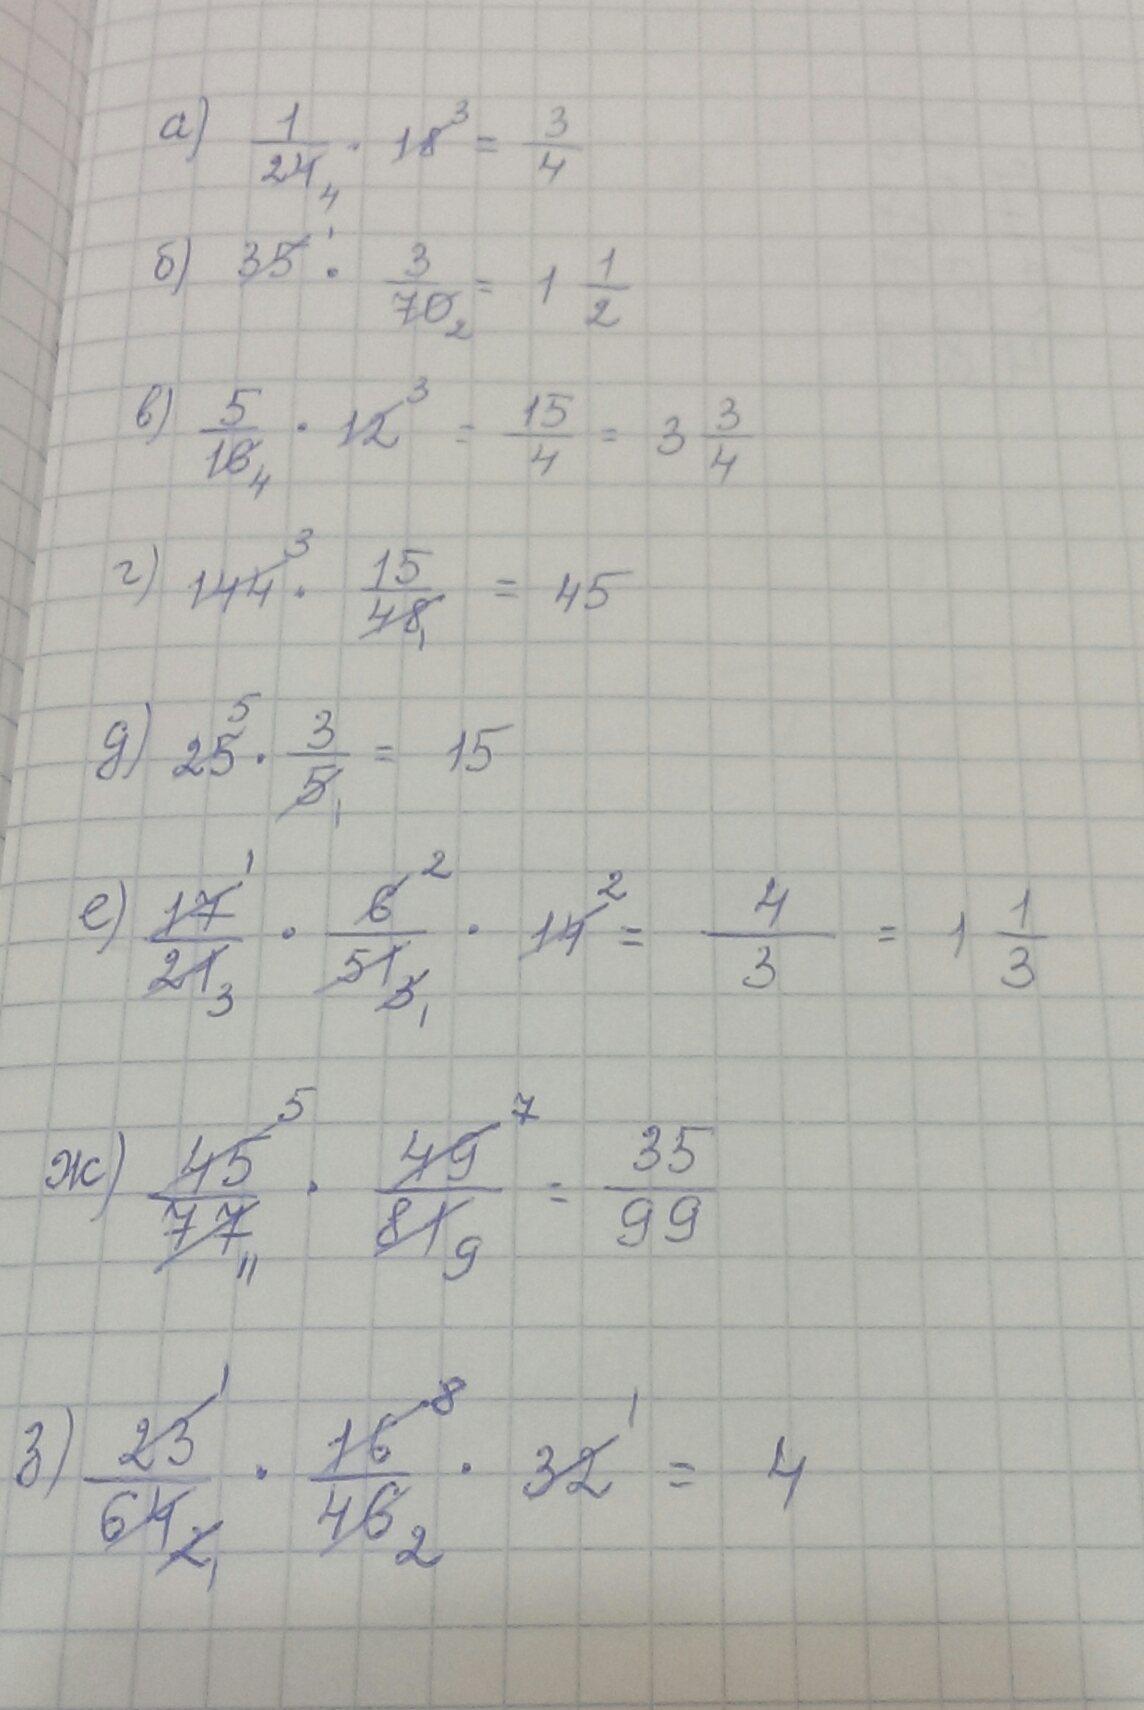 а) 1/24₄ · 18³ = 3/4
б) 35¹ · 3/70₂ = 1 1/2
в) 5/16₄ · 12³ = 15/4 = 3 3/4
г) 144³ · 15/48₁ = 45
д) 25⁵ · 3/5₁ = 15
е) 17¹/21₃ · 6²/51₃₁ · 14² = 4/3 = 1 1/3
ж) 45⁵/77₁₁ · 49⁷/81₉ = 35/99
з) 23¹/64₂₁ · 16⁸/46₂ · 32¹ = 4